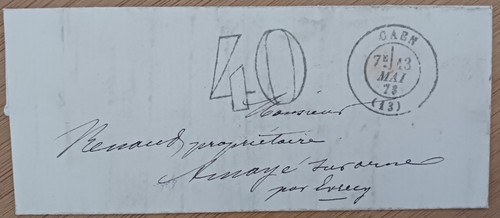 40
CAEN
7E 13
MAI
73
(13)
Monsieur
Renaud propriétaire
Amayé sur orne
par Evrecy